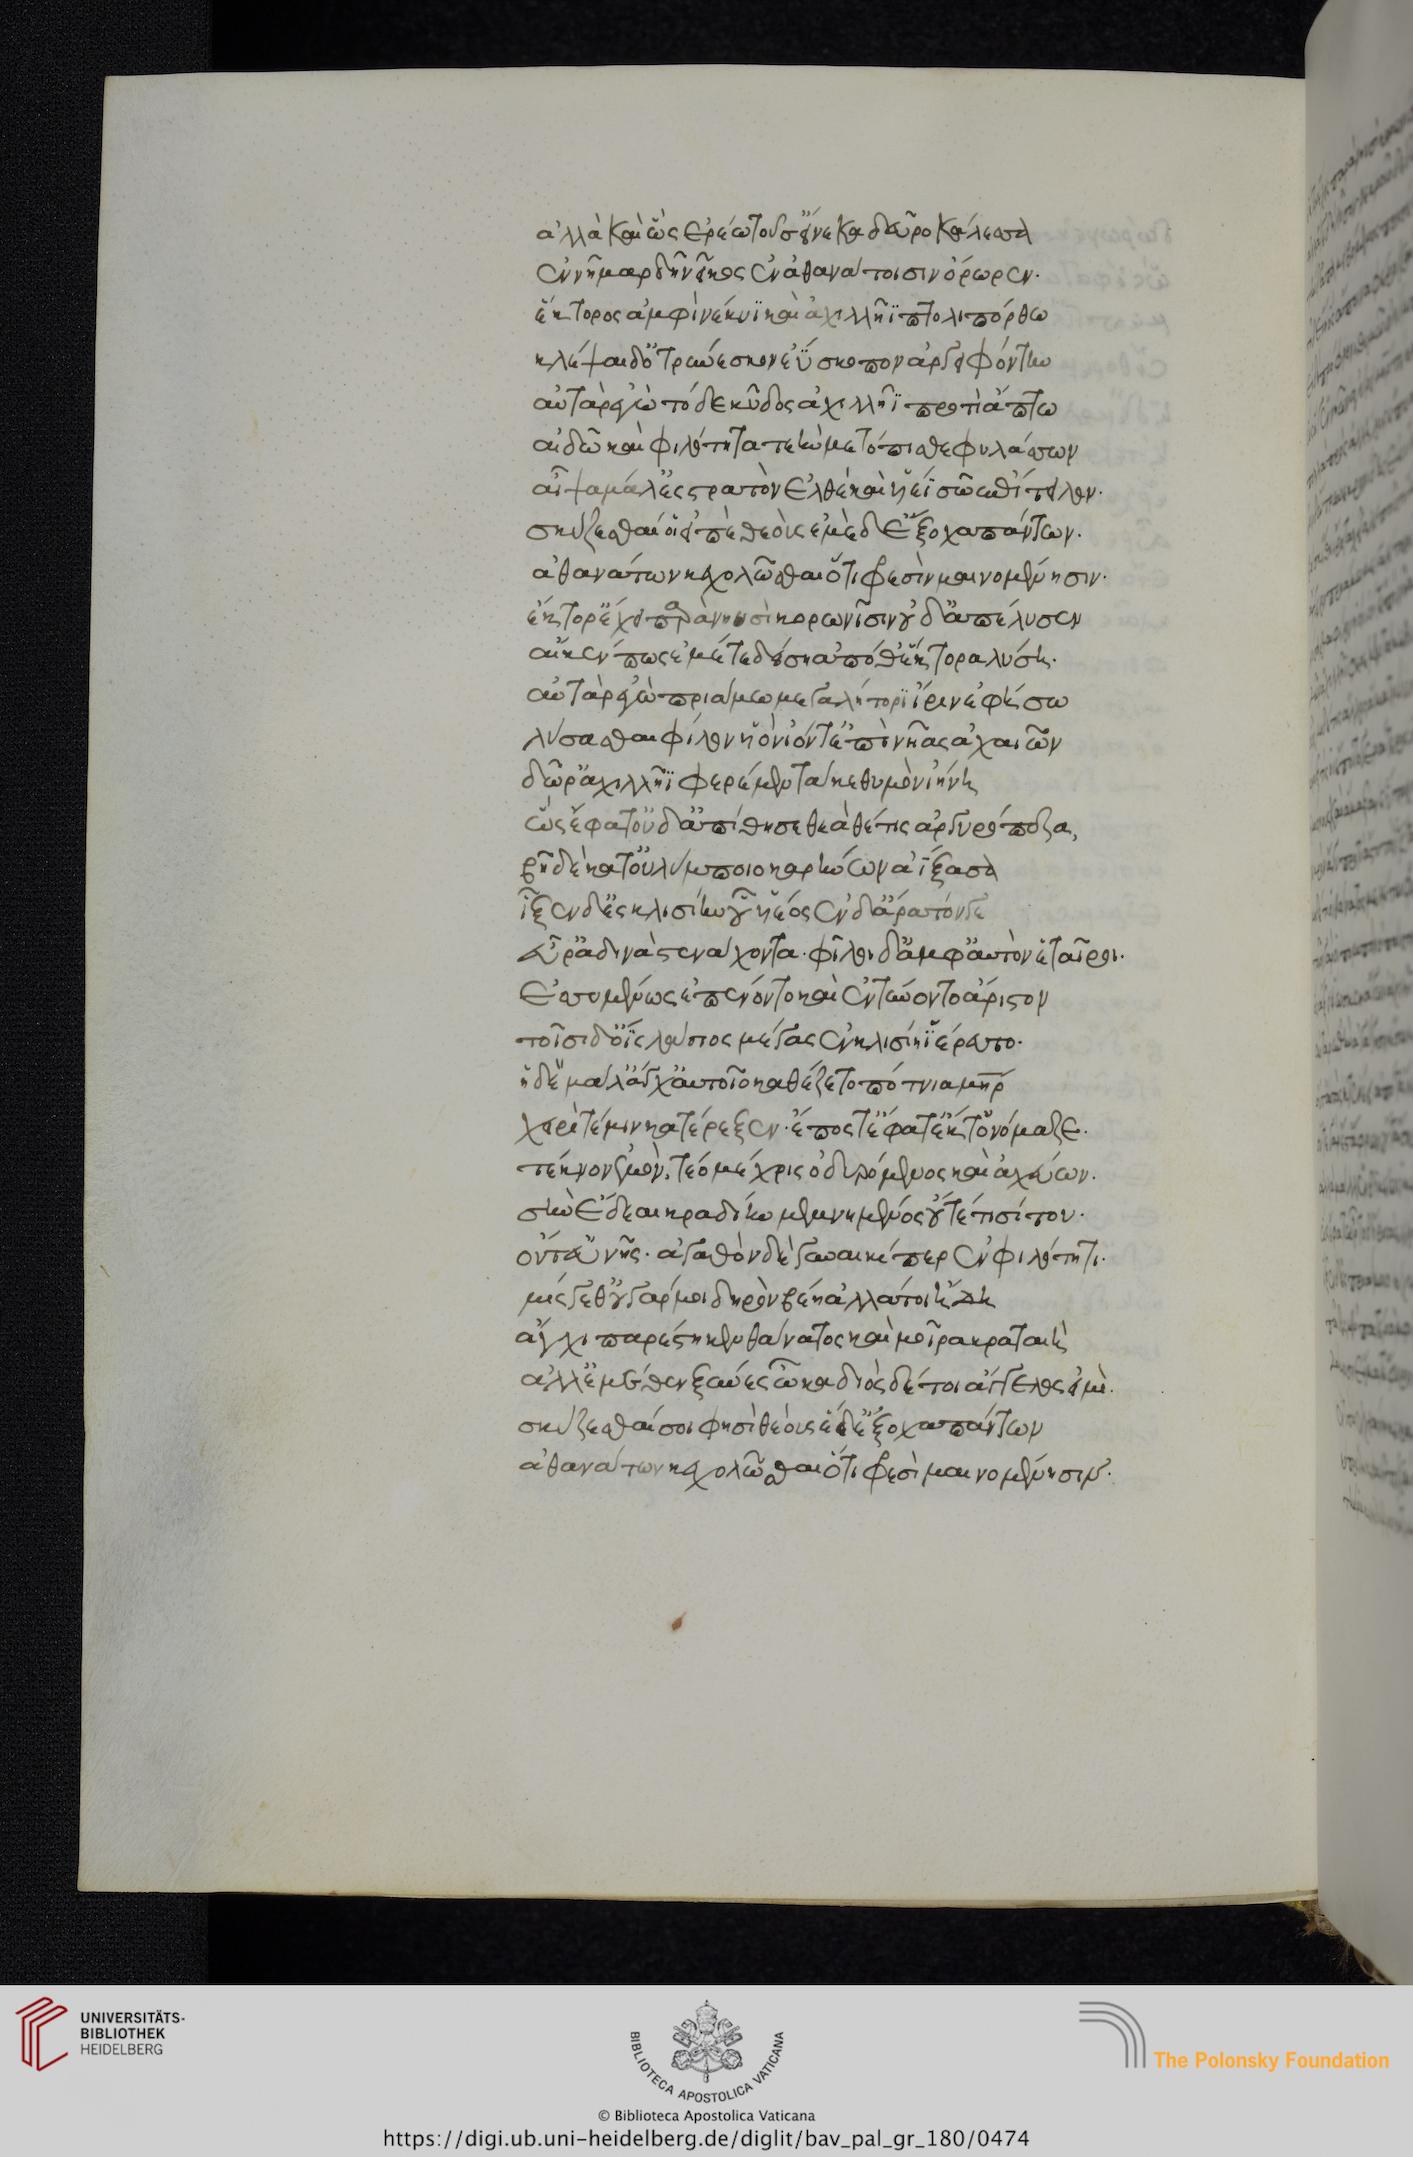 ἀλλὰ καὶ ὣς ἐρέω τοῦ σ' εἵνεκα δεῦρο κάλεσσα
ἐννῆμαρ δὴ νεῖκος ἐν ἀθανάτοισιν ὄρωρεν·
ἕκτορος ἀμφὶ νέκυϊ καὶ ἀχιλλῆϊ πτολιπόρθω
κλέψαι δ' ὀτρύνεσκον ἐΰσκοπον ἀργειφόντην
αὐτὰρ ἐγὼ τόδε κῦδος ἀχιλλῆϊ προτιάπτω
αἰδῶ καὶ φιλότητα τεὴν μετόπισθε φυλάσσων
αἶψα μάλ' ἐς στρατὸν ἐλθὲ καὶ υἱέϊ σῶ ἐπίτειλον·
σκύζεσθαί οἱ εἰπὲ θεοὺς ἐμὲ δ' ἔξοχα πάντων·
ἀθανάτων κεχολῶσθαι ὅτι φρεσὶν μαινομένησιν·
ἕκτορ' ἔχει παρὰ νηυσὶ κορωνίσιν οὐδ' ἀπέλυσεν
αἴ κέν πως ἐμέ τε δείση ἀπό θ' ἕκτορα λύση·
αὐτὰρ ἐγὼ πριάμω μεγαλήτορϊ ἶριν ἐφήσω
λύσασθαι φίλον υἱὸν ἰόντ' ἐπὶ νῆας ἀχαιῶν
δῶρ' ἀχιλλῆϊ φερέμεν τά κε θυμὸν ἰήνη
ὣς ἔφατ' οὐδ' ἀπίθησε θεὰ θέτις ἀργυρόπεζα,
βῆ δὲ κατ' οὐλύμποιο καρήνων ἀΐξασα
ἷξεν δ' ἐς κλισίην οὗ υἱέος ἐν δ' ἄρα τόνδε
εὗρ' ἁδινὰ στενάχοντα· φίλοι δ' ἀμφ' αὐτὸν ἑταῖροι·
ἐσσυμένως ἐπένοντο καὶ ἐντύνοντο ἄριστον
τοῖσι δ' ὄϊς λάσιος μέγας ἐν κλισίη ἱέρευτο·
ἡ δὲ μάλ' ἄγχ' αὐτοῖο καθέζετο πότνια μηρ
χειρί τέ μιν κατέρεξεν· ἔπος τ' ἔφατ' ἔκ τ' ὀνόμαζε·
τέκνον ἐμὸν, τέο μέχρις ὀδυρόμενος καὶ ἀχεύων·
σὴν ἔδεαι κραδίην μεμνημένος οὔτέ τι σίτου·
οὔτ' εὐνῆς· ἀγαθὸν δὲ γυναικί περ ἐν φιλότητι·
μίσγεσθ' οὐ γάρ μοι δηρὸν βέη ἀλλά τοι ἤδη
ἄγχι παρέστηκεν θάνατος καὶ μοῖρα κραταιή
ἀλλ' ἐμέθεν ξύνες ὦκα διὸς δέ τοι ἄγγελος εἰμὶ·
σκύζεσθαί σοι φησὶ θεοὺς ἑὲ δ' ἔξοχα πάντων
ἀθανάτων κεχολῶσθαι ὅτι φρεσὶ μαινομένησιν·
UNIVERSITÄTS-
BIBLIOTHEK
HEIDELBERG
BIBLIOTECA APOSTOLICA VATICANA
The Polonsky Foundation
© Biblioteca Apostolica Vaticana
https://digi.ub.uni-heidelberg.de/diglit/bav_pal_gr_180/0474